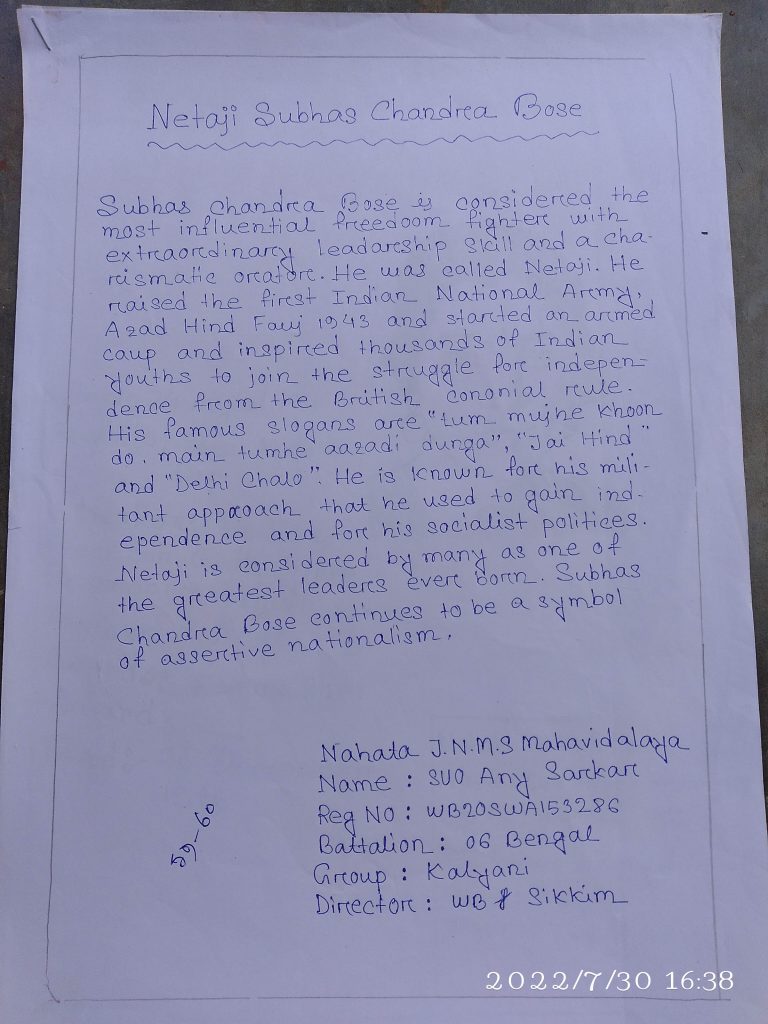 Netaji Subhas Chandra Bose
Subhas Chandra Bose is considered the
most influential freedoom fighter with
extraordinary leadarship skill and a cha-
rismatic oratore. He was called Netaji. He
raised the first Indian National Army,
Azad Hind Fauj 1943 and started an armed
caup and inspired thousands of Indian
youths to join the struggle for indepen-
dence from the British cononial rule.
His famous slogans are "tum mujhe khoon
do. main tumhe aazadi dunga", "Jai Hind"
and "Delhi Chalo". He is known for his mili-
tant approach that he used to gain ind-
ependence and for his socialist politices.
Netaji is considered by many as one of
the greatest leaders ever born. Subhas
Chandra Bose continues to be a symbol
of assertive nationalism.
Nahata J.N.M.S Mahavidalaya
Name : SUO Any Sarkar
Reg NO : WB20SWA153286
Battalion : 06 Bengal
Group : Kalyani
Director : WB & Sikkim
59-60
2022/7/30 16:38